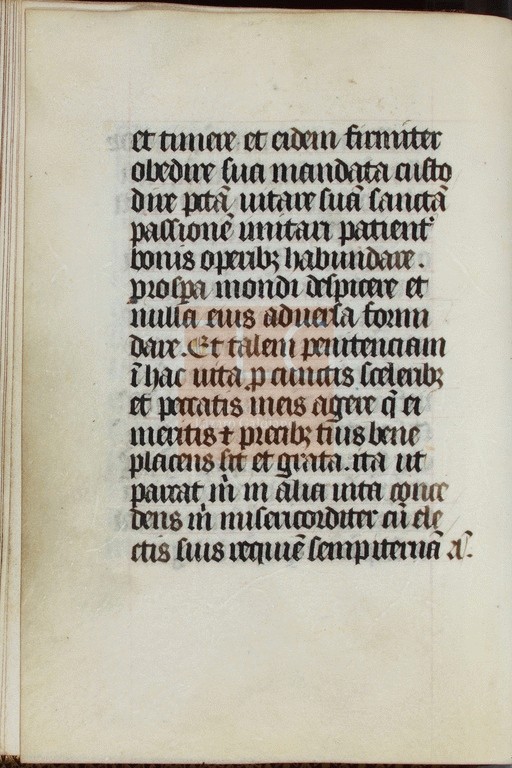 et timere et eidem firmiter
obedire sua mandata custo
dire pctā uitare suā sanctā
passionē imitari patient᷑
bonis operibꝫ habundare.
prosꝑa mondi despicere et
nulla eius aduersa formi
dare. Et talem penitenciam
ī hac uita ꝓ cunctis sceleribꝫ
et peccatis meis agere q̄ ei
meritis ⁊ precibꝫ tuis bene
placens sit et grata. ita ut
parcat m̄ in alia uita conce
dens m̄ misericorditer cū ele
ctis suis requiē sempiternā